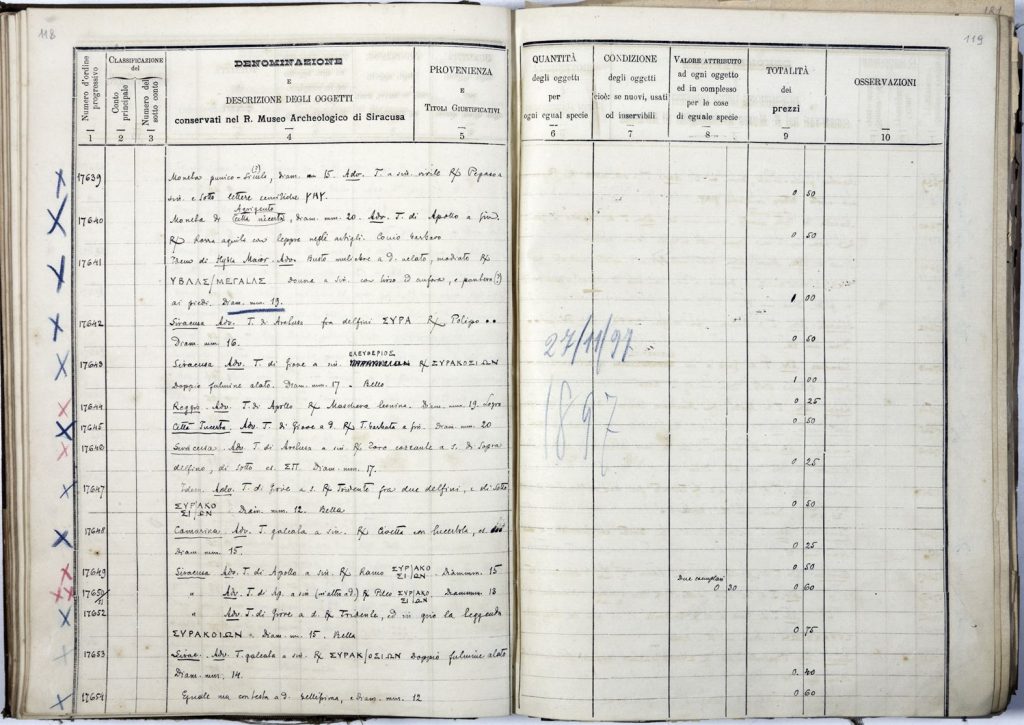 118
Numero d'ordine progressivo
1
CLASSIFICAZIONE del
Conto principale
2
Numero del sotto conto
3
DENOMINAZIONE
E
DESCRIZIONE DEGLI OGGETTI
conservati nel R. Museo Archeologico di Siracusa
4
PROVENIENZA
E
TITOLI GIUSTIFICATIVI
5
17639 Moneta punico-Sicula (?), diam. mm 15. Adv. T. a sin. virile R/ Pegaso a
sin. e sotto lettere
Agrigento
17640 Moneta di Città incerta, diam. mm. 20. Adv. T. di Apollo a sin.
R/ Rossa aquila con lepre negli artigli. Conio barbaro
17641 Idem di Hybla Maior. Adv. Busto muliebre a d. velato, modiato R/
ΥΒΛΑΣ/ΜΕΓΑΛΑΣ Donna a sin. con tirso ed anfora, e pantera (?)
ai piedi. Diam. mm. 19.
17642 Siracusa Adv. T. di Arethusa fra delfini ΣΥΡΑ R/ Polipo ••
Diam. mm. 16.
ΕΛΕΥΘΕΡΙΟΣ
17643 Siracusa Adv. T. di Giove a sin. R/ ΣΥΡΑΚΟΣΙΩΝ
Doppio fulmine alato. Diam. mm. 17. Bello
17644 Reggio. Adv. T. di Apollo R/ Maschera leonina. Diam. mm. 19.
17645 Città Incerta. Adv. T. di Giove a d. R/ T. barbata a sin. Diam. mm. 20
17646 Siracusa. Adv. T. di Arethusa a sin R/ Toro cozzante a s. Di sopra
delfino, di sotto es. ΣΠ Diam. mm. 17.
17647 Idem. Adv. T. di Giove a s. R/ Tridente fra due delfini, e di sotto
ΣΥΡΑΚΟ
ΣΙΩΝ Diam. mm. 12. Bella
17648 Camarina Adv. T. galeata a sin. R/ Civetta con lucertola, es
Diam. mm. 15.
17649 Siracusa Adv. T. di Apollo a sin. R/ Ramo ΣΥΡΑΚΟ ΣΙΩΝ. Diam mm. 15
17650/51 " Adv. T. di Ap. a sin (m'altra a d.) R/ ΣΥΡΑΚΟ ΣΙΩΝ. Diam mm. 13
17652 " Adv. T. di Giove a d. R/ Tridente, ed in giro la leggenda
ΣΥΡΑΚΟΙΩΝ. Diam. mm. 15. Bella
17653 Sirac. Adv. T. galeata a sin. R/ ΣΥΡΑΚ/ΟΣΙΩΝ Doppio fulmine alato
Diam. mm. 14.
17654 Eguale ma con testa a d. Bellissima, e diam. mm. 12
181
119
QUANTITÀ
degli oggetti
per
ogni egual specie
6
CONDIZIONE
degli oggetti
cioè: se nuovi, usati
od inservibili
7
VALORE ATTRIBUITO
ad ogni oggetto
ed in complesso
per le cose
di eguale specie
8
TOTALITÀ
dei
prezzi
9
OSSERVAZIONI
10
0 50
0 50
1 00
27/11/97
0 50
1 00
1897
0 25
0 50
0 25
0 50
0 25
0 50
Due esemplari
0 30 0 60
0 75
0. 40
0 60